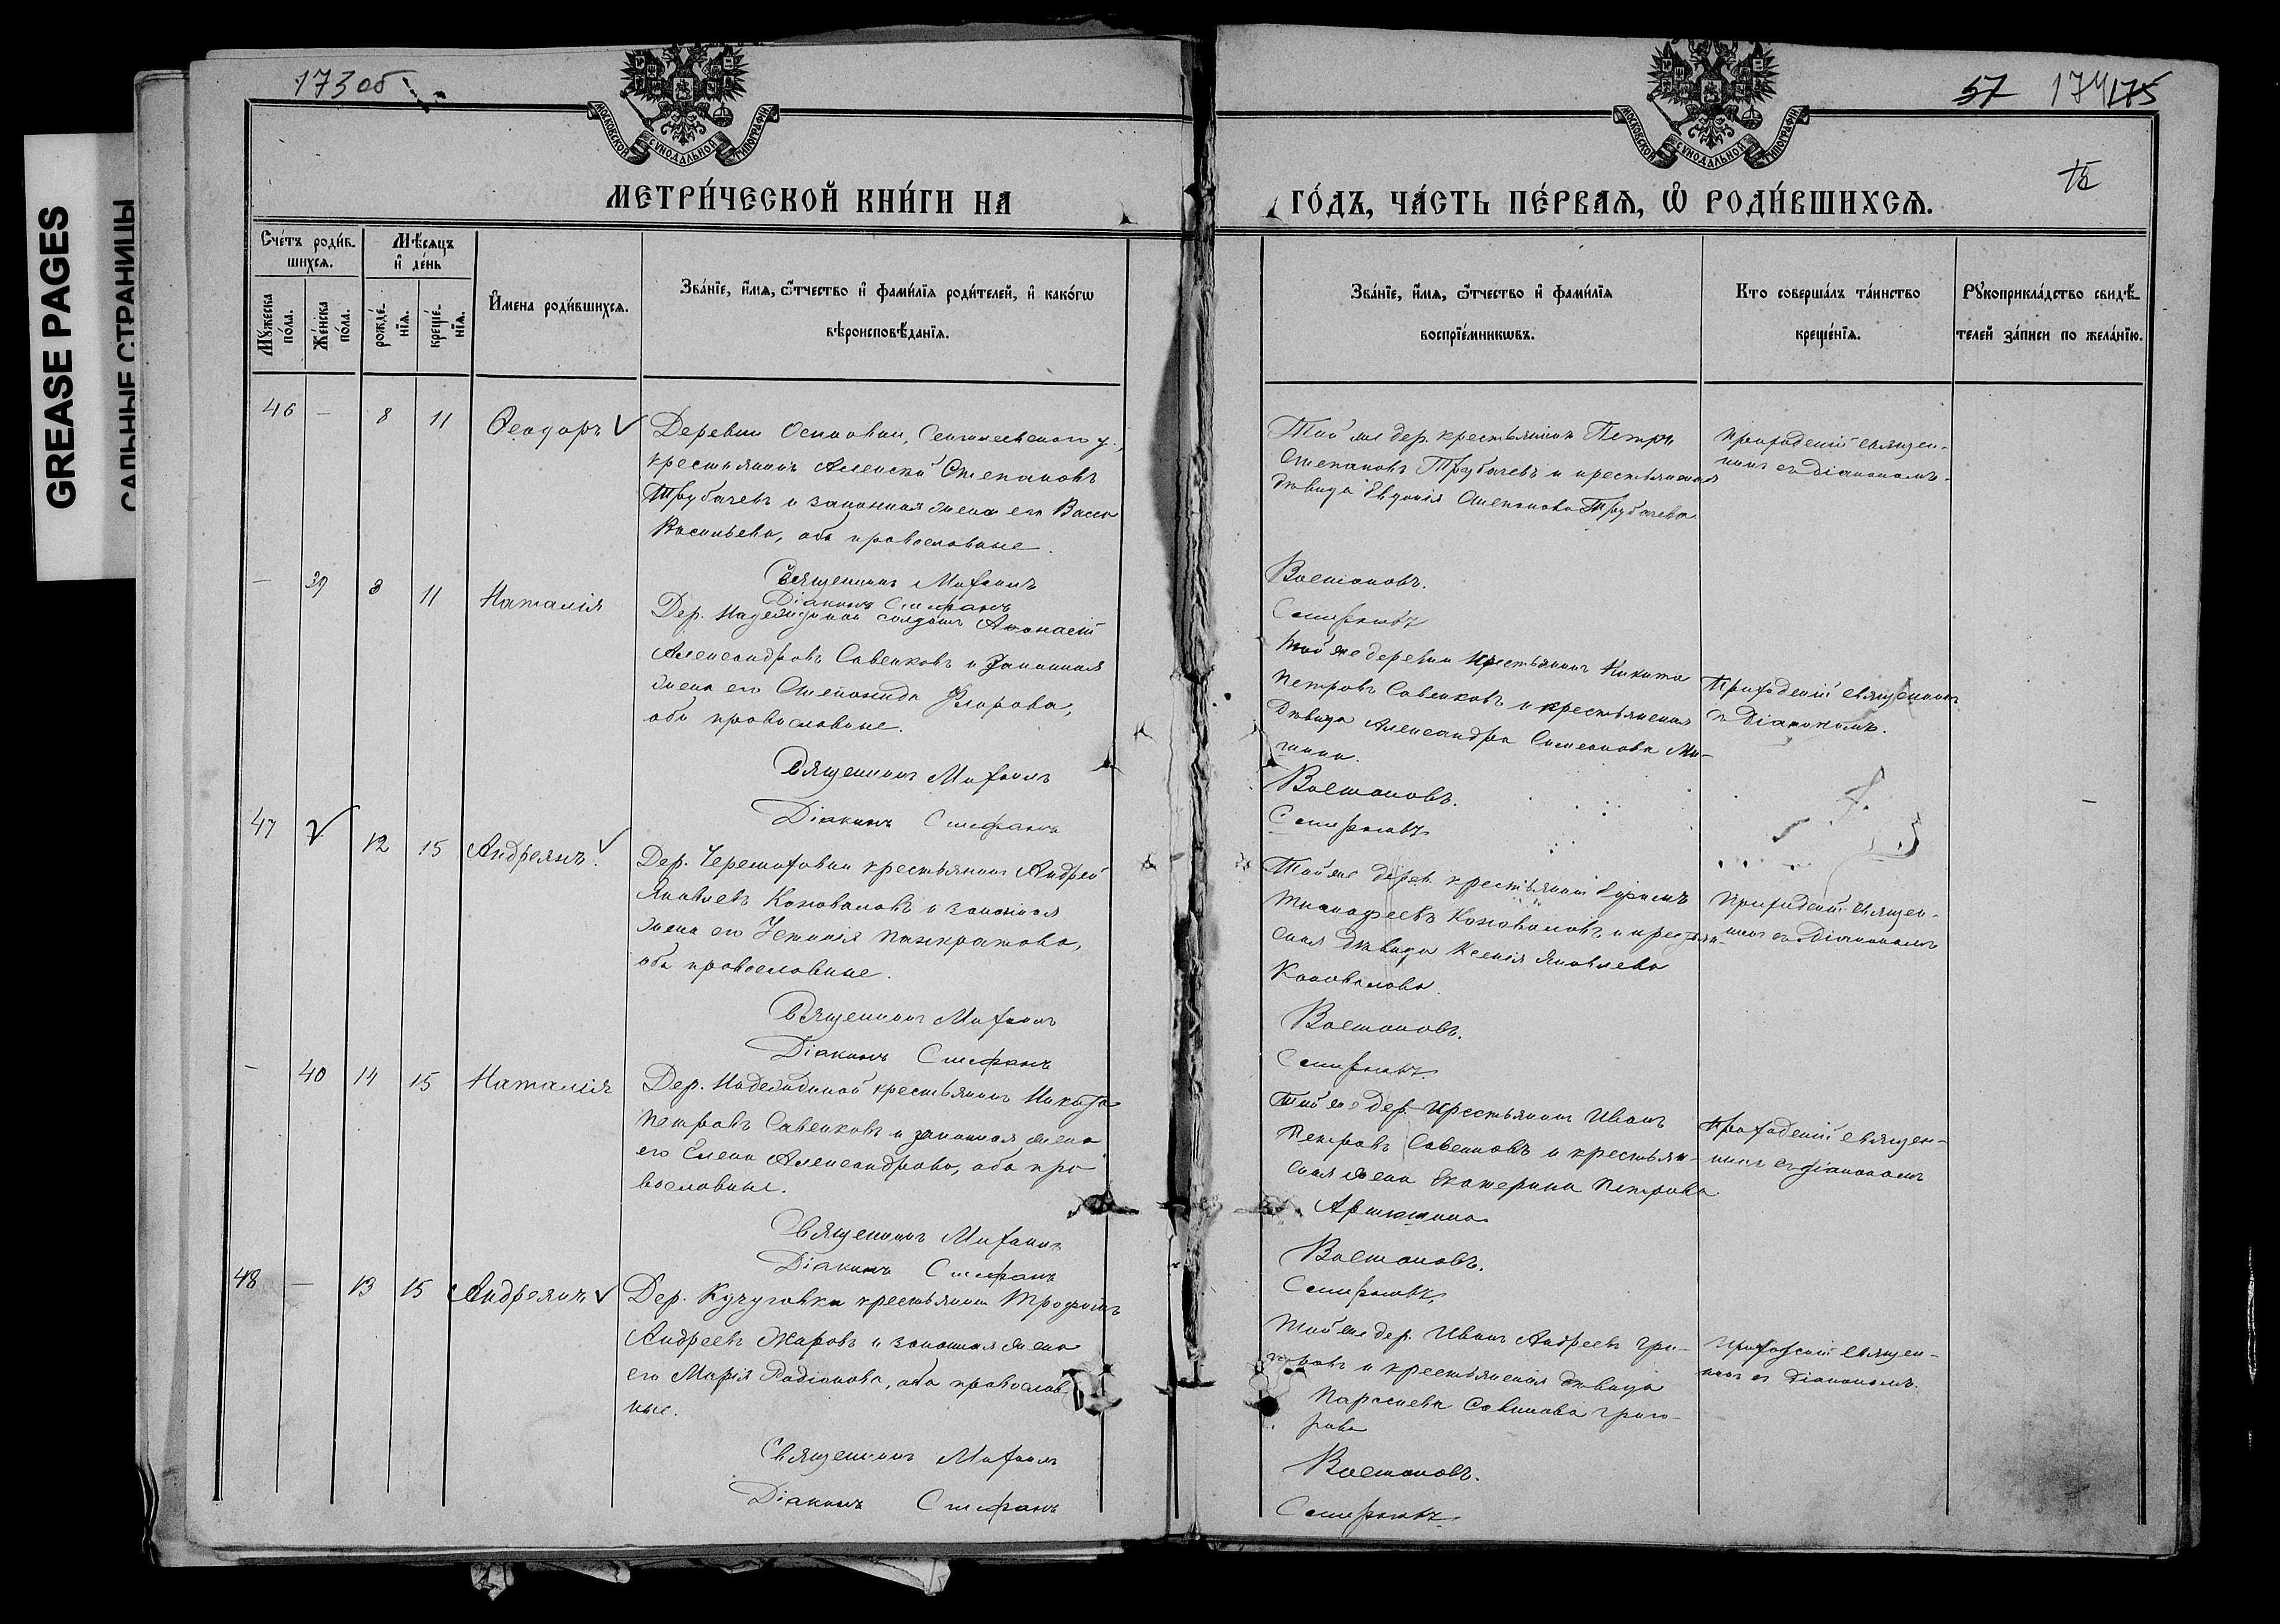 GREASE PAGES
САЛЬНЫЕ СТРАНИЦЫ
173 об
МОСКОВСКОЙ СѴНОДАЛЬНОЙ ТИПОГРАФІИ
МЕТРИ́ЧЕСКОЙ КНИ́ГИ НА
Сче́тъ роди́в-
шихсѧ.
Мѣ́сѧцъ
и҆ де́нь
Мꙋ́жеска
по́ла.
Же́нска
по́ла.
рожде́-
нїѧ.
креще́-
нїѧ.
И҆мена роди́вшихсѧ.
Зва́нїе, и҆́мѧ, ѻ҆́тчество и҆ фами́лїѧ роди́телей, и҆ како́гѡ
вѣроисповѣ́данїѧ.
46 — 8 11 Ѳеодоръ
Деревни Осиновки,
крестьянинъ Алексѣй Степановъ
Трубачевъ и законная жена его Васса
Васильева, оба православные.
Священникъ Михаилъ
Діаконъ Стефанъ
— 39 8 11 Наталія
Дер. Надеждиной солдатъ Аѳанасій
Александровъ Савенковъ и законная
жена его Степанида
оба православные.
Священникъ Михаилъ
Діаконъ Стефанъ
47 12 15 Андреянъ.
Дер. Черемховки крестьянинъ Андрей
Яковлевъ Коновалов и законная
жена его Устинія Панкратова,
оба православные.
Священникъ Михаилъ
Діаконъ Стефанъ
— 40 14 15 Наталія
Дер. Надеждиной крестьянинъ Никита
Петровъ Савенковъ и законная жена
его Елена Александрова, оба пра
вославные.
Священникъ Михаилъ
Діаконъ Стефанъ
48 — 13 15 Андреянъ
Дер. крестьянинъ Трофимъ
Андреевъ Жаровъ и законная жена
его Марія Родіонова, оба православ
ные.
Священникъ Михаилъ
Діаконъ Стефанъ
57 174 175
15
МОСКОВСКОЙ СѴНОДАЛЬНОЙ ТИПОГРАФІИ
ГО́ДЪ, ЧА́СТЬ ПЕ́РВАѦ, Ѡ҆ РОДИ́ВШИХСѦ.
Зва́нїе, и҆́мѧ, ѻ҆́тчество и҆ фами́лїѧ
воспрїе́мникѡвъ.
Кто соверша́лъ та́инство
креще́нїѧ.
Рꙋкоприкла́дство свидѣ́-
телей за́писи по жела́нїю.
Той же дер. крестьянинъ Петръ
Степановъ Трубачевъ и крестьянская
дѣвица Евдокія Степанова Трубачева.
Приходскій священ-
никъ съ діакономъ.
Востоковъ.
Той же деревни крестьянинъ Никита
Петровъ Савенковъ и крестьянская
дѣвица Александра Симеонова Ми-
Приходскій священникъ
съ Діакономъ.
Востоковъ.
Той же дерев. крестьянинъ Ефимъ
Тимофеевъ Коноваловъ и крестьян-
ская дѣвица Ксенія Яковлева
Коновалова.
Приходскій священ-
никъ съ діакономъ
Востоковъ.
Той же дер. крестьянинъ Иванъ
Петровъ Савенковъ и крестьян-
ская жена Екатерина Петрова
Артюшина
Приходскій священ-
никъ съ діакономъ
Востоковъ.
Той же дер. Иванъ Андреевъ Гри-
и крестьянская дѣвица
Параскева Савинова Григо-
рова
Приходскій священ-
никъ съ діакономъ.
Востоковъ.